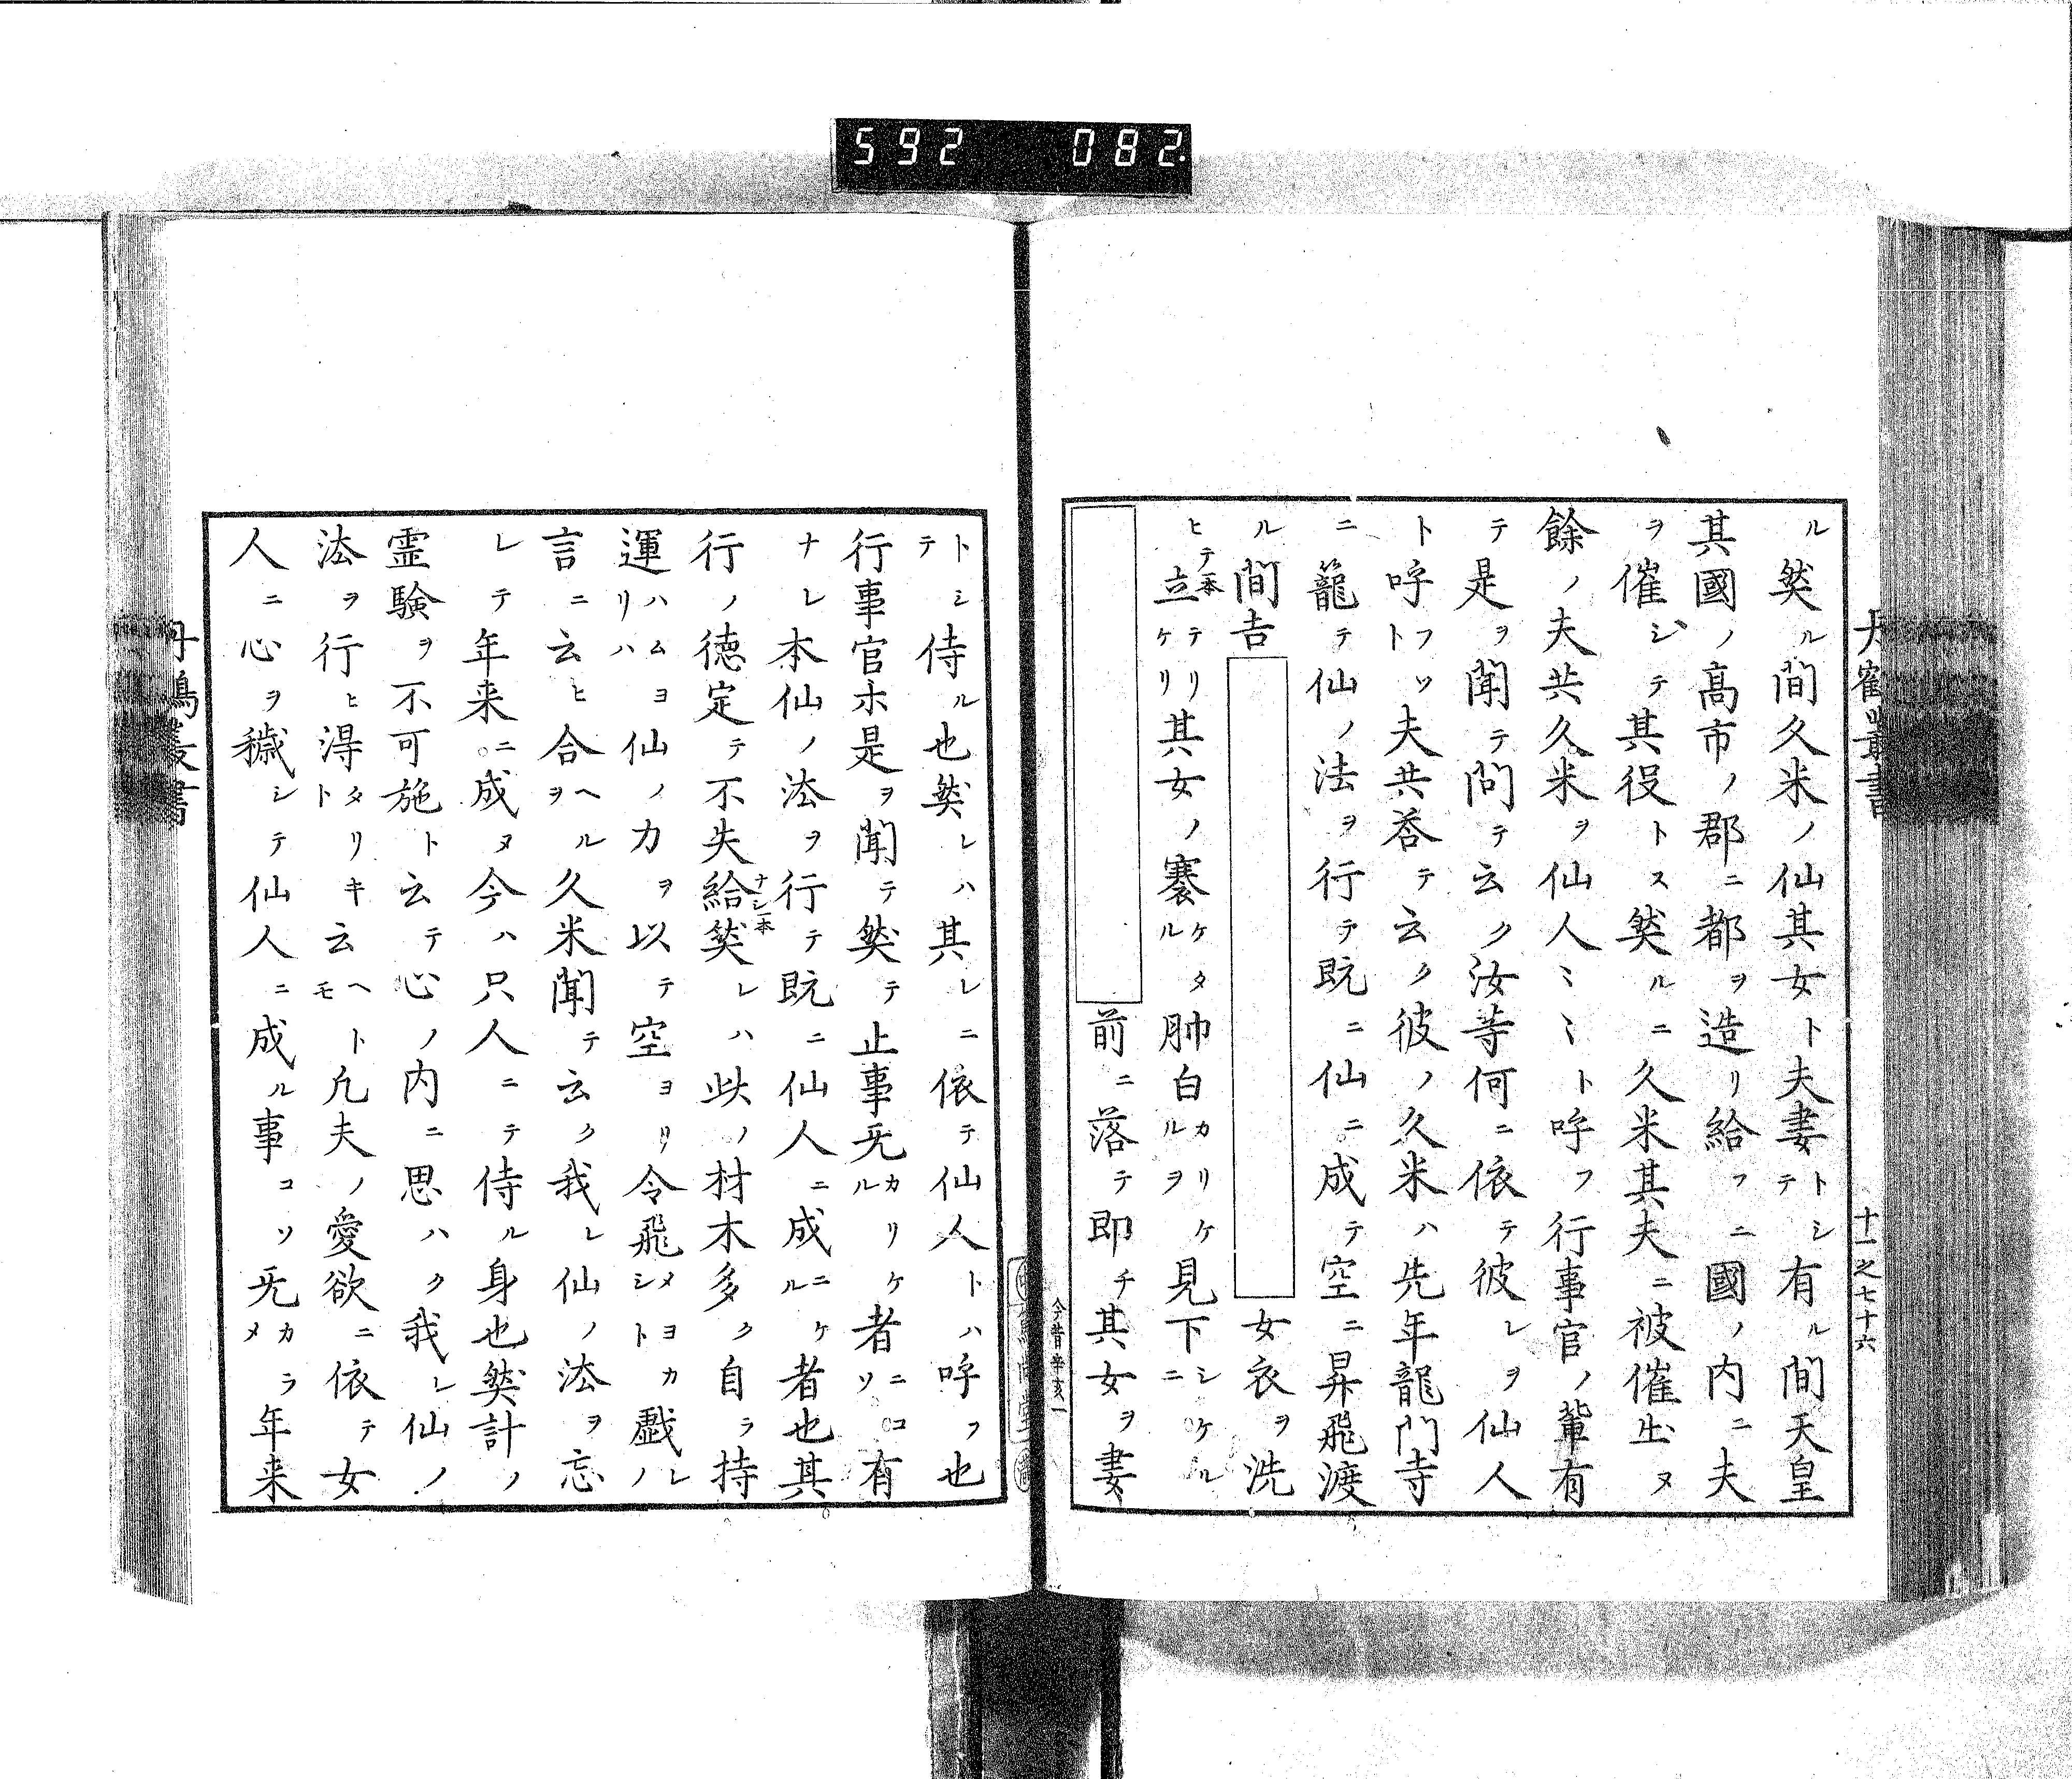 丹鶴叢書　十一之七十六
ル然ル間久米ノ仙其女ト夫妻トシテ有ル間天皇
其國ノ髙市ノ郡ニ都ヲ造リ給フニ國ノ内ニ夫
ヲ催シテ其役トス然ルニ久米其夫ニ被催出ヌ
餘ノ夫共久米ヲ仙人ミミト呼フ行事官ノ輩有
テ是ヲ聞テ問テ云ク汝等何ニ依テ彼レヲ仙人
ト呼フソト夫共荅テ云ク彼ノ久米ハ先年龍門寺
ニ籠テ仙ノ法ヲ行テ既ニ仙ニ成テ空ニ昇飛渡
ル間吉　女衣ヲ洗
ヒテ一本立テリケリ其女ノ褰ケタル肺白カリケルヲ見下シケルニ
前ニ落テ即チ其女ヲ妻
今昔辛亥一
トシテ侍ル也然レハ其レニ依テ仙人トハ呼フ也
行事官ホ是ヲ聞テ然テ止事旡カリケル者ニコソ有
ナレ本仙ノ法ヲ行テ既ニ仙人ニ成ニケル者也其
行ノ徳定テ不失給ナシ一本然レハ此ノ材木多ク自ラ持
運ハムヨリハ仙ノ力ヲ以テ空ヨリ令飛メヨカシト戯レノ
言ニ云ヒ合ヘルヲ久米聞テ云ク我レ仙ノ法ヲ忘
レテ年来ニ成ヌ今ハ只人ニテ侍ル身也然計ノ
霊験ヲ不可施ト云テ心ノ内ニ思ハク我レ仙ノ
法ヲ行ヒ得タリキト云ヘトモ凡夫ノ愛欲ニ依テ女
人ニ心ヲ穢シテ仙人ニ成ル事コソ旡カラメ年来
丹鶴叢書